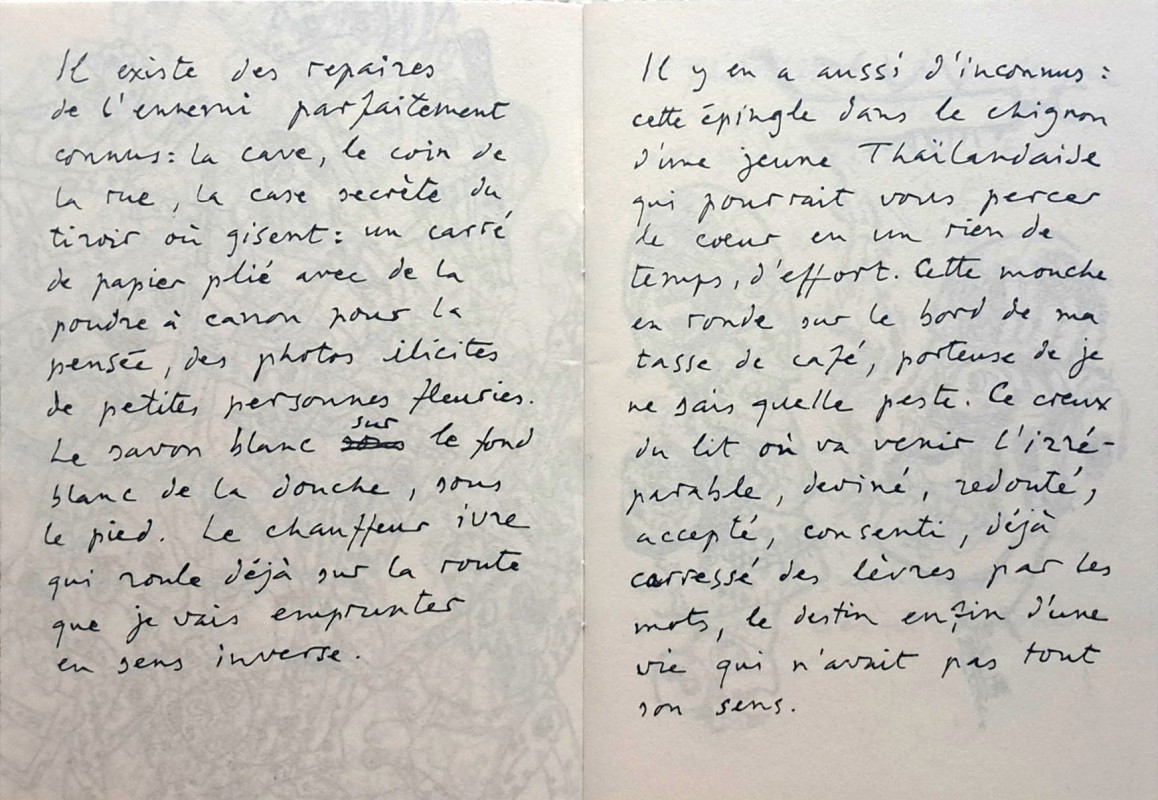 Il existe des repaires
de l'ennemi parfaitement
connus : la cave, le coin de
la rue, la case secrète du
tiroir où gisent : un carré
de papier plié avec de la
poudre à canon pour la
pensée, des photos ilicites
de petites personnes fleuries.
Le savon blanc sur le fond
blanc de la douche, sous
le pied. Le chauffeur ivre
qui roule déjà sur la route
que je vais emprunter
en sens inverse.
Il y en a aussi d'inconnus :
cette épingle dans le chignon
d'une jeune Thaïlandaise
qui pourrait vous percer
le coeur en un rien de
temps, d'effort. Cette mouche
en ronde sur le bord de ma
tasse de café, porteuse de je
ne sais quelle peste. Ce creux
du lit où va venir l'irré-
parable, deviné, redouté,
accepté, consenti, déjà
carressé des lèvres par les
mots, le destin enfin d'une
vie qui n'avait pas tout
son sens.